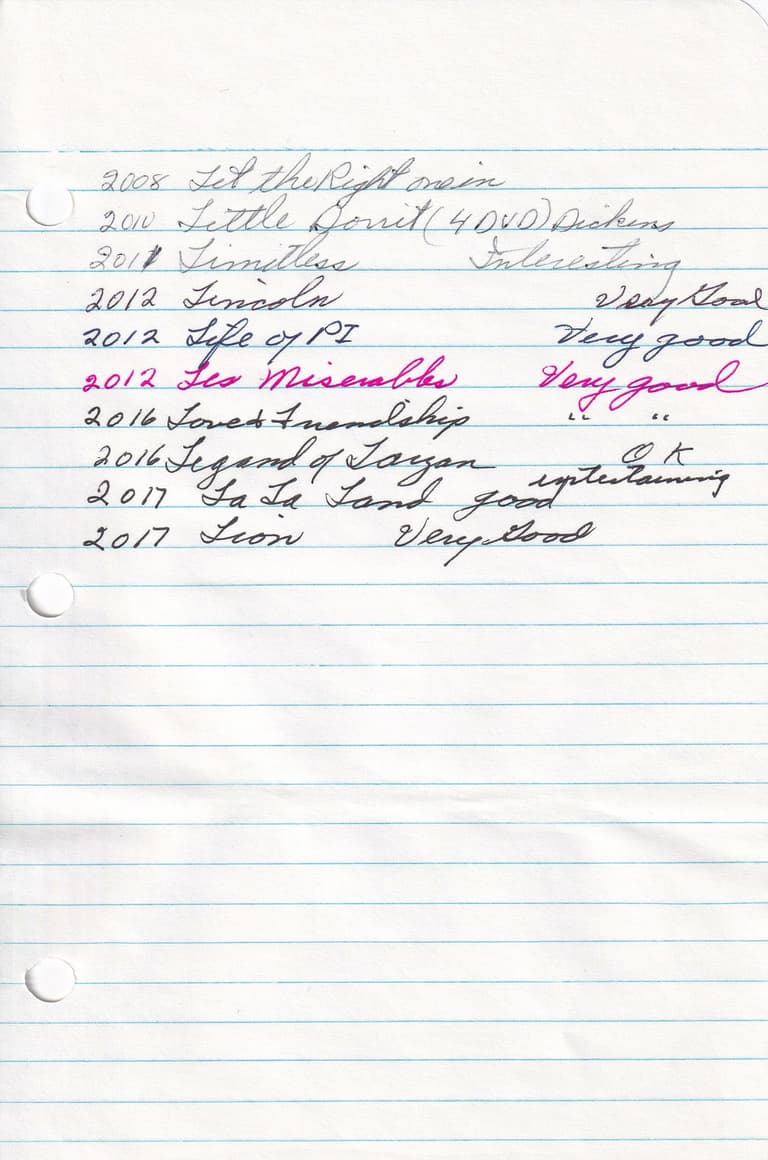 2008 Let the Right one in
2010 Little Dorrit (4 DVD) Dickens
2011 Limitless Interesting
2012 Lincoln Very Good
2012 Life of PI Very good
2012 Les Miserables Very good
2016 Love & Friendship " "
2016 Legand of Tarzan OK
2017 La La Land good entertaining
2017 Lion Very Good